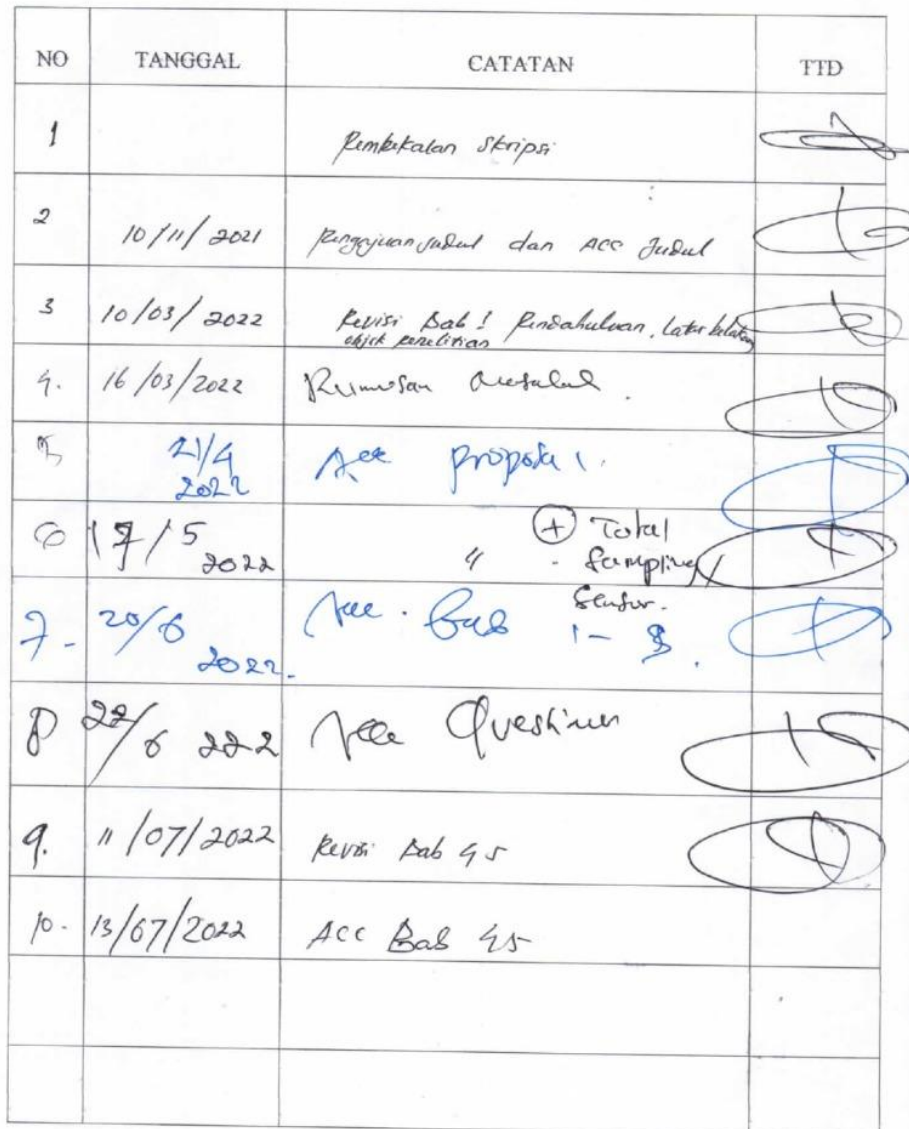 NO TANGGAL CATATAN TTD
1 Pembekalan Skripsi
2 10/11/2021 Pengajuan Judul dan ACC Judul
3 10/03/2022 Revisi Bab I Pendahuluan, Latar belakang
objek penelitian
4. 16/03/2022 Rumusan masalah.
5 21/4 2022 Acc proposal.
6 17/5 2022 " + Total
Sampling
Sensus.
7. 20/6 2022. Acc. Bab 1-3.
8 22/6 2022 Acc Questiner
9. 11/07/2022 Revisi Bab 4 5
10. 13/07/2022 ACC Bab 4 5